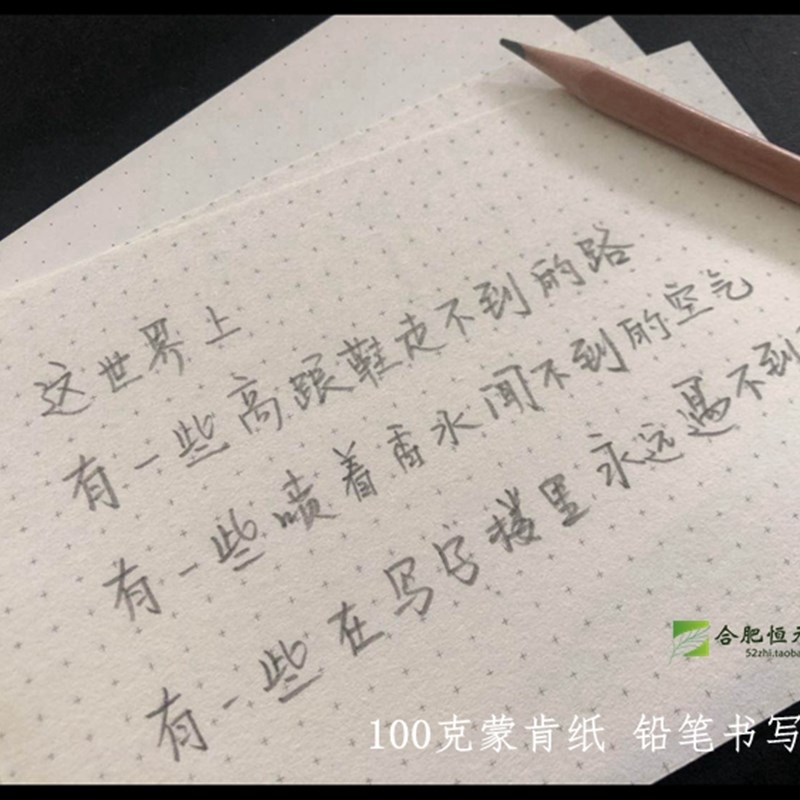 这世界上
有一些高跟鞋走不到的路
有一些喷着香水闻不到的空气
有一些在写字楼里永远遇不到
合肥恒
52zhi.taoba
100克蒙肯纸 铅笔书写